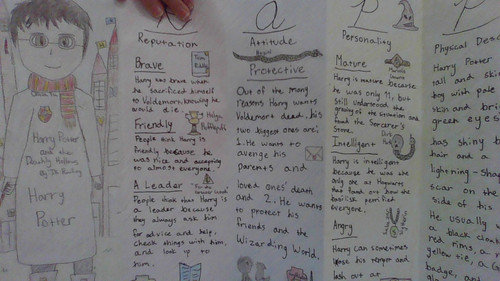 Harry Potter
and the
Deathly Hallows
By JK Rowling
Harry
Potter
N
Reputation
Brave
Tom
Riddle
Harry was brave when
he sacrificed himself
to Voldemort, knowing he
would die.
Friendly
Helga
Hufflepuff
People think Harry is
friendly because he
was nice and accepting
to almost everyone.
A Leader
People think that Harry is
a leader because
they always ask him
for advice and help,
check things with him,
and look up to
him.
a
Attitude
Protective
Out of the many
reasons Harry wants
Voldemort dead, his
two biggest ones are:
1. He wants to
avenge his
parents and
loved ones' death
and 2. He wants
to protect his
friends and the
Wizarding World.
P
Personality
Mature
Harry is mature because
he was only 11, but
still understood the
gravity of the situation and
found the Sorcerer's
Stone.
Intelligent
Harry is intelligent
because he was the
only one at Hogwarts
that found out how the
basilisk petrified
everyone.
Angry
Harry can sometimes
lose his temper and
lash out at
P
Physical Desc
Harry Potter
tall and ski
boy with pale
skin and bri
green eyes
has shiny b
hair and a
lightning-shap
scar on the
side of his
He usually w
a black cloa
red rims, a r
yellow tie, a
badge, and